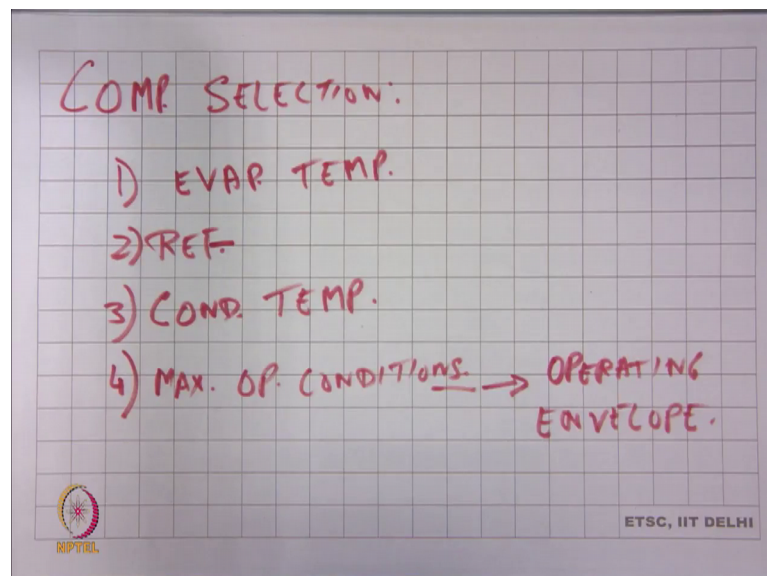 COMP. SELECTION:
1) EVAP. TEMP.
2) REF.
3) COND. TEMP.
4) MAX. OP. CONDITIONS. → OPERATING
ENVELOPE.
NPTEL
ETSC, IIT DELHI